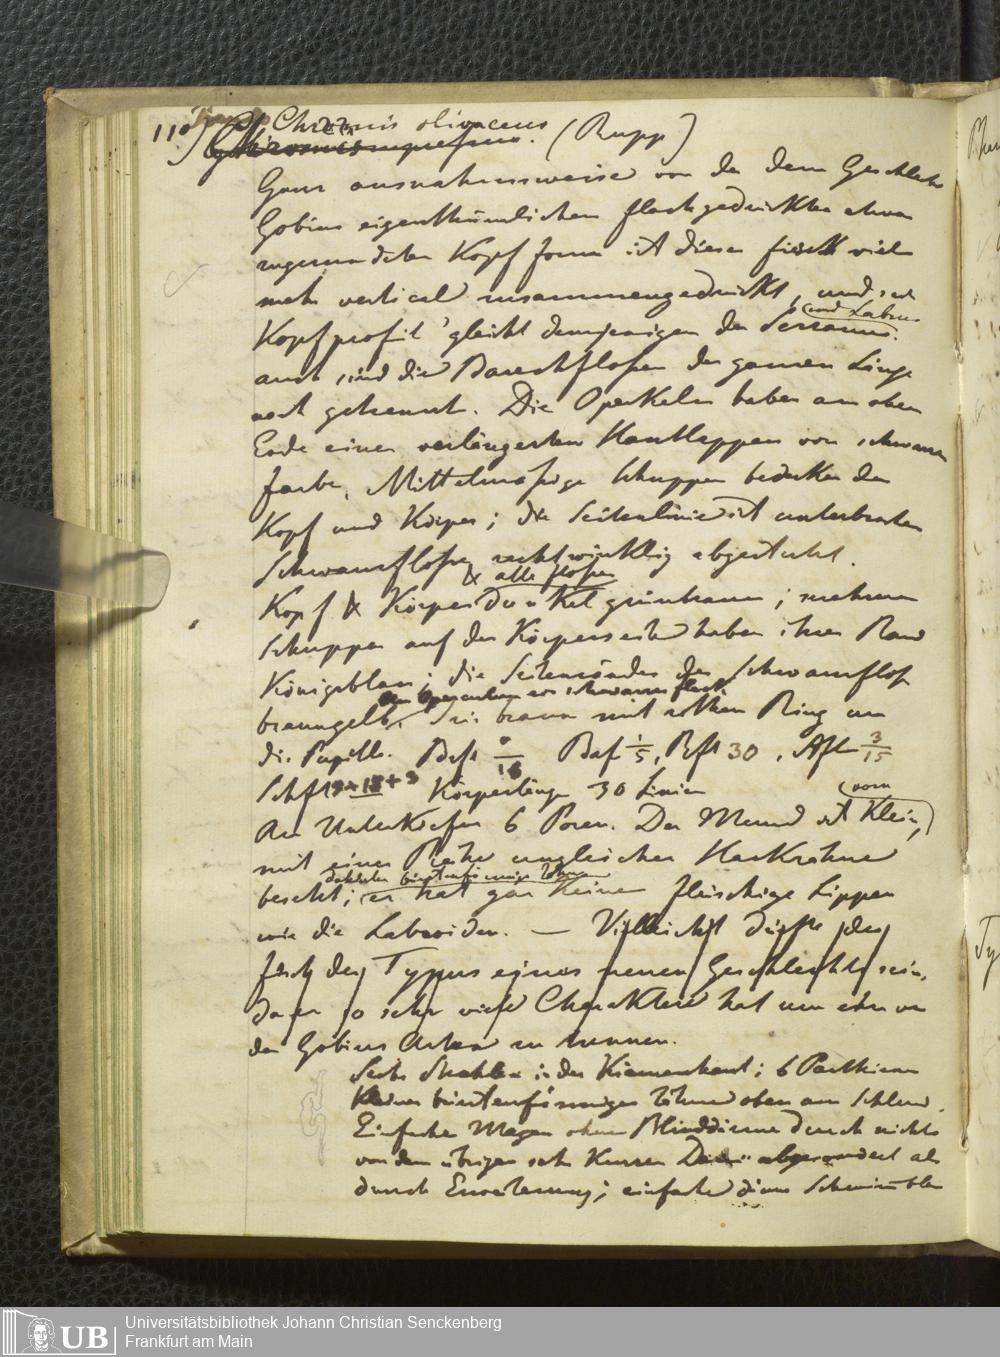 110) Chromis olivaceus (Rupp)
Ganz ausnahmsweise von der dem Geschlecht
Gobius eigenthümlichen flachgedrückten etwas
zugerundeten Kopf form ist dieser fisch viel
mehr vertical zusammengedrückt, und sein
und Labrus
Kopfprofil gleicht demjenigen der Serranus.
auch sind die Bauchflossen der ganzen Länge
nach getrennt. Die Operkeln haben am oben
Ende einen verlängerten Hautlappen von schwarzer
farbe, Mittelmäsige Schuppen bedecken den
Kopf und Körper; die Seitenlinie ist unterbrochen
Schwanzflosse rechtwinklig abgestutzt.
& alle flossen
Kopf & Körper dunkel grünbraun; mehrere
Schuppen auf der Körperseite haben ihren Rand
Königsblau; die Seitenränder der Schwanzfloss
am Operculum ein schwarzer fleck
braungelb. Iris braun mit rothem Ring um
die Pupille. Bfl 1/5, Rfl 30, Afl 3/15
Körperlänge 30 Linien
vorn
Am Unterkiefer 6 Poren. Der Mund ist Klein,
mit einer Reihe ungleicher Hackzähne
dahinter bürstenförmige Zähne
besetzt; er hat gar keine fleischige Lippen
wie die Labroiden. — Vielleicht dürfte der
fisch der Typus eines neuen Geschlechts sein,
da er so sehr viele Charaktere hat um ihn von
den Gobius Arten zu trennen.
Sechs Strahlen in der Kiemenhaut; 6 Parthien
kleiner bürstenförmiger Zähne oben am Schlund.
Einfacher Magen ohne Blinddärme durch nichts
von dem übrigen sehr Kurzen Darm abgesondert als
durch Erweiterung; einfache dünne Schwimmblase
Universitätsbibliothek Johann Christian Senckenberg
Frankfurt am Main
UB